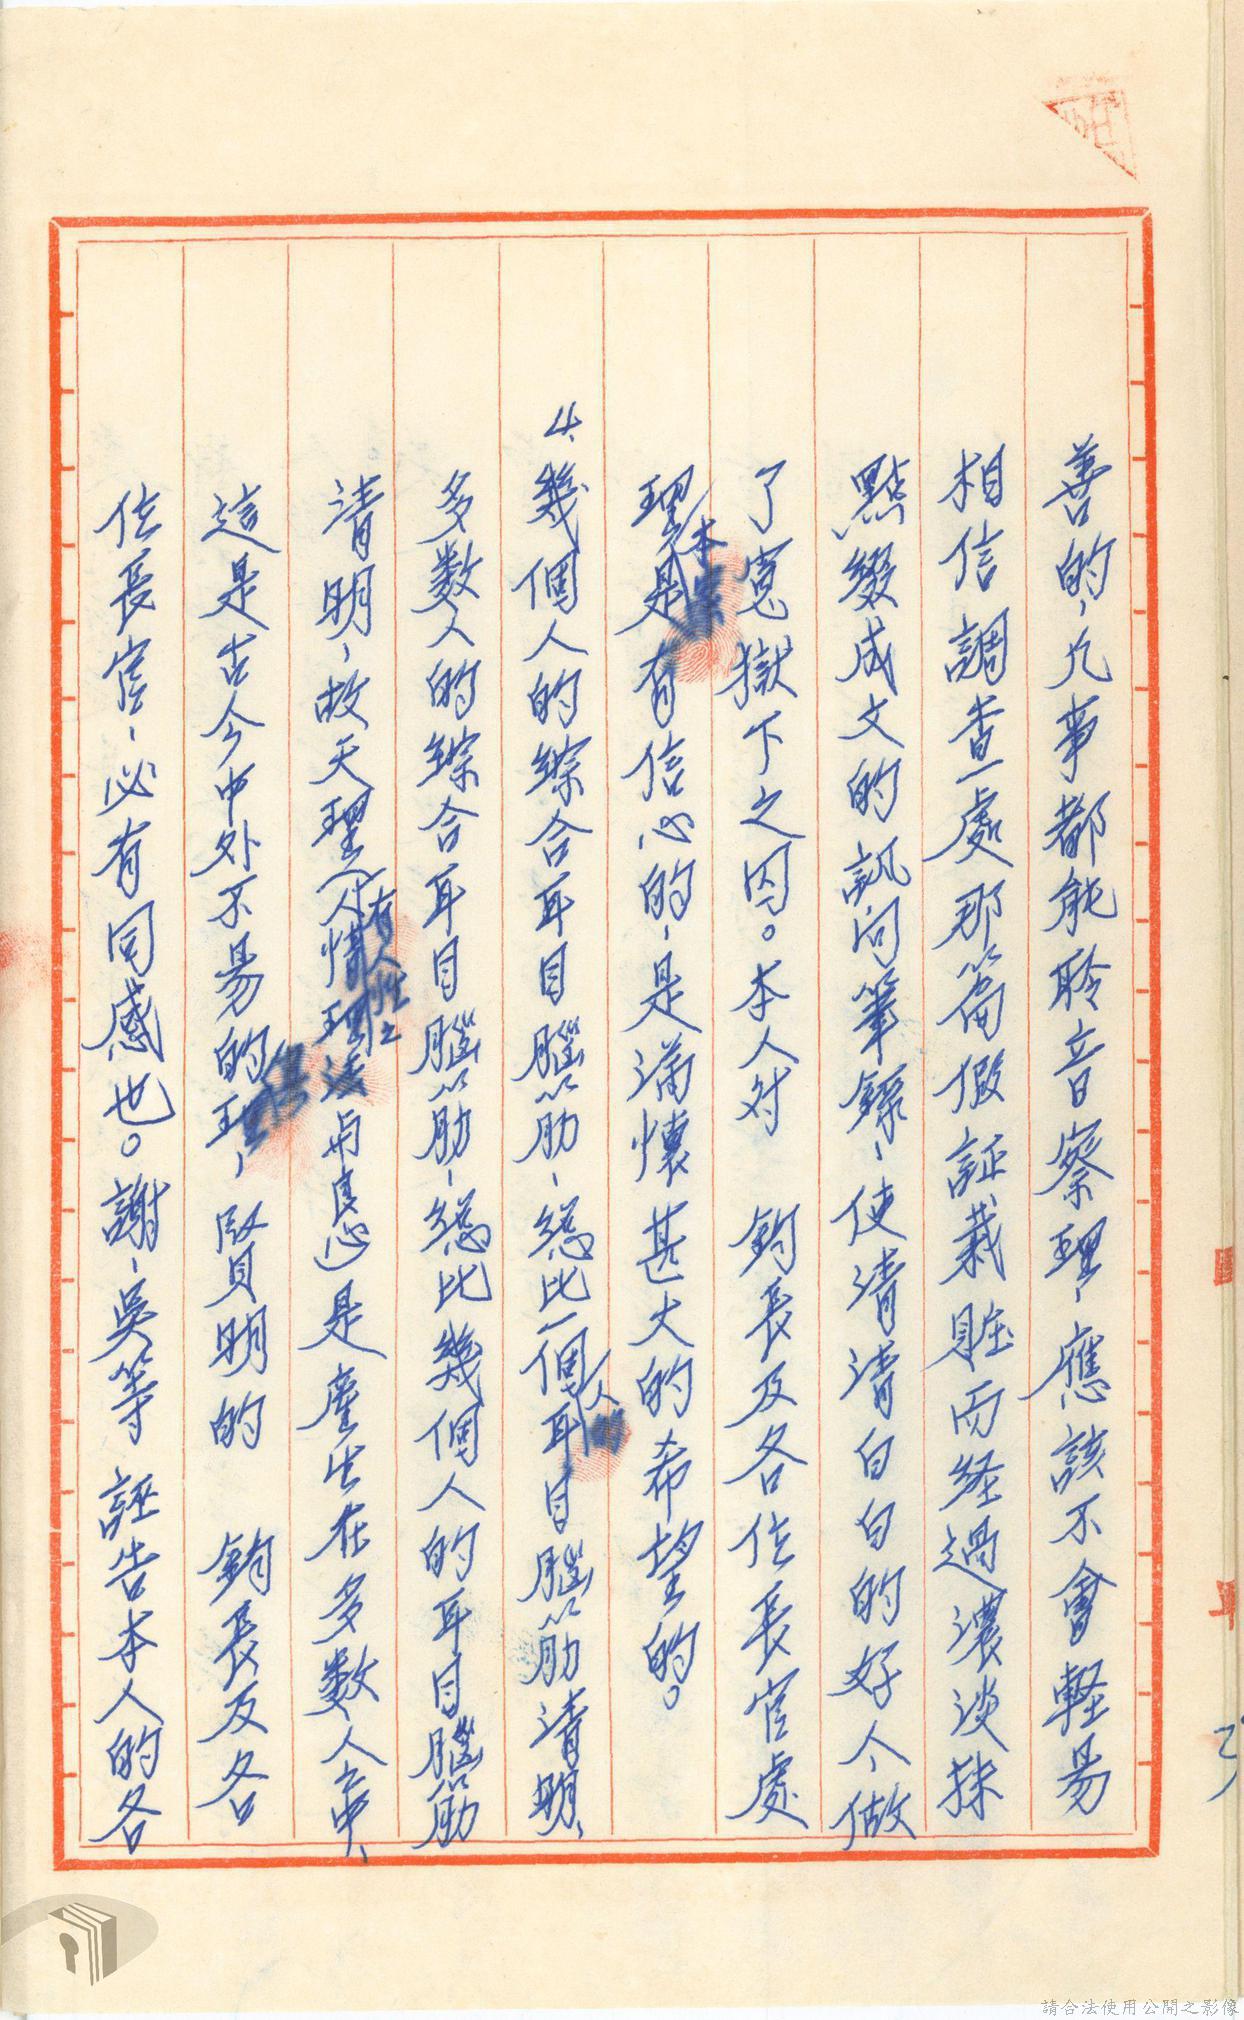 善的，凡事都能聆音察理，應該不會輕易
相信調查處那篇假証栽賍而經過濃淡抹
點綴成文的訊问筆錄，使清清白白的好人，做
了寃獄下之囚。本人对　鈞長及各位長官處
理本案是有信心的，是满懷甚大的希望的。
4.幾個人的綜合耳目腦筋，總比一個人的耳目腦筋清明、
多数人的綜合耳目腦筋，總比幾個人的耳目腦筋
清明，故天理人情有人性之理法与良心是產生在多数人之中、
這是古今中外不易的理，賢明的　鈞長及各
位長官，必有同感也。謝、吳等　誣告本人的各
請合法使用公開之影像